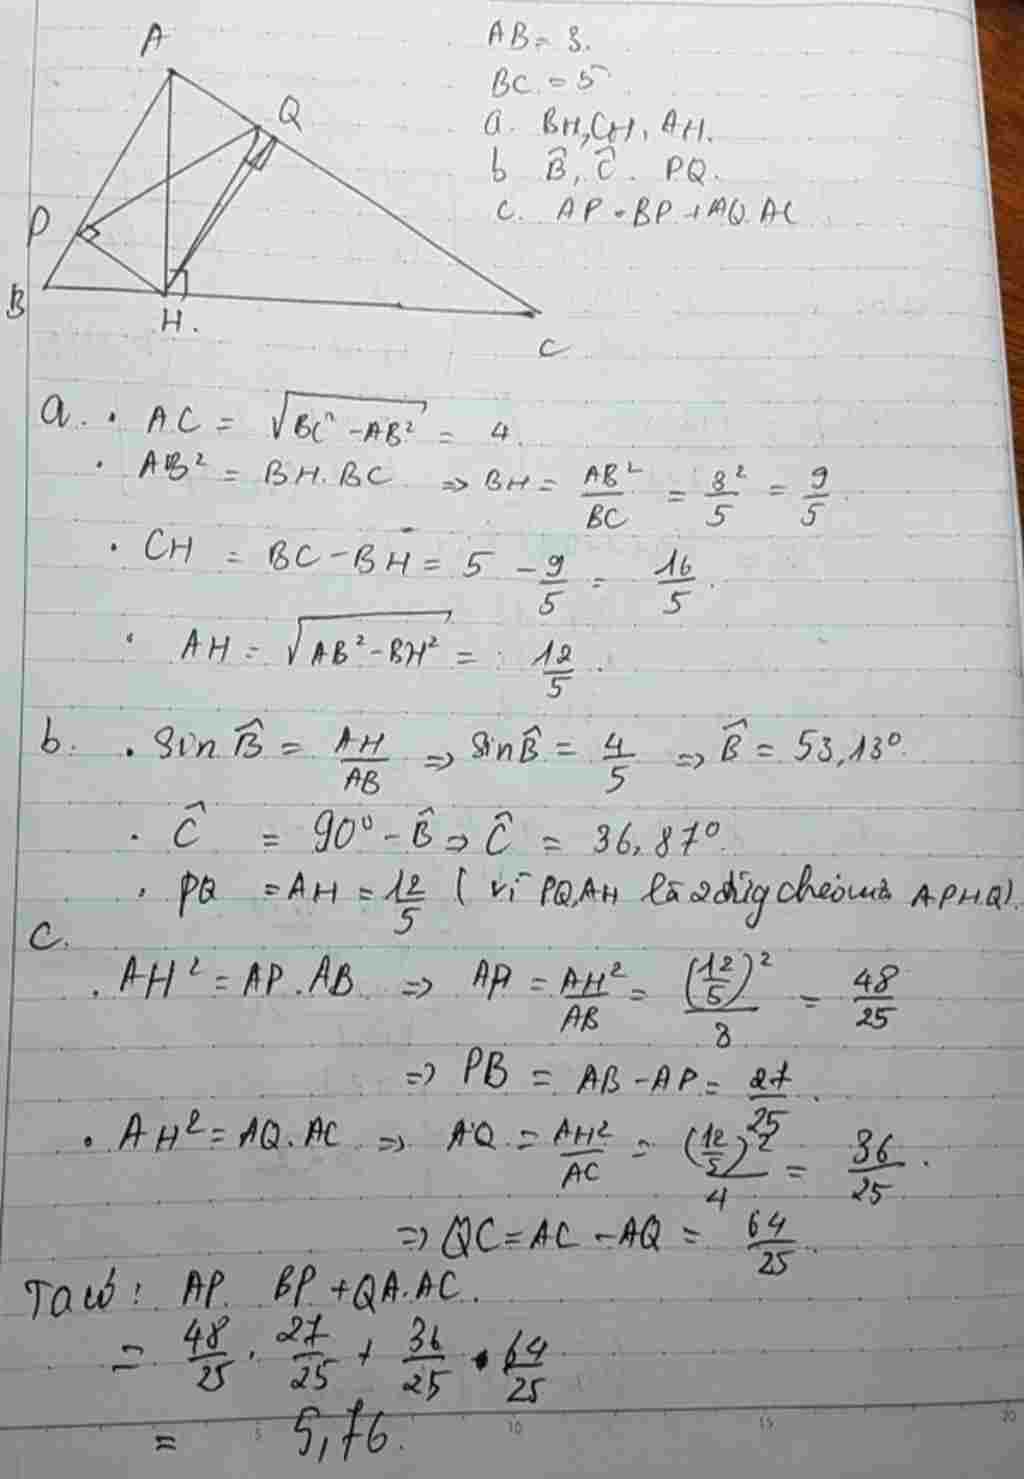 A
Q
P
B
H.
C
AB = 3.
BC = 5
a. BH, CH, AH.
b B̂, Ĉ. PQ.
c. AP.BP + AQ.AC
a. • AC = √(BC² - AB²) = 4.
• AB² = BH.BC ⇒ BH = AB²/BC = 3²/5 = 9/5.
• CH = BC - BH = 5 - 9/5 = 16/5.
• AH = √(AB² - BH²) = 12/5.
b. • sin B̂ = AH/AB ⇒ sin B̂ = 4/5 ⇒ B̂ = 53,13°.
• Ĉ = 90° - B̂ ⇒ Ĉ = 36,87°.
• PQ = AH = 12/5 ( vì PQ, AH là 2 đ chéo APHQ).
c.
• AH² = AP.AB ⇒ AP = AH²/AB = (12/5)²/3 = 48/25
⇒ PB = AB - AP = 27/25.
• AH² = AQ.AC ⇒ AQ = AH²/AC = (12/5)²/4 = 36/25.
⇒ QC = AC - AQ = 64/25.
Ta có: AP. BP + QA.AC.
= 48/25 . 27/25 + 36/25 • 64/25
= 5,76.
5 10 15 20